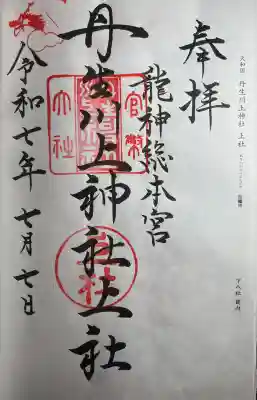 奉拝
龍神総本宮
丹生川上神社上社
令和七年 七月七日
官幣大社
上社
大和国 丹生川上神社 上社